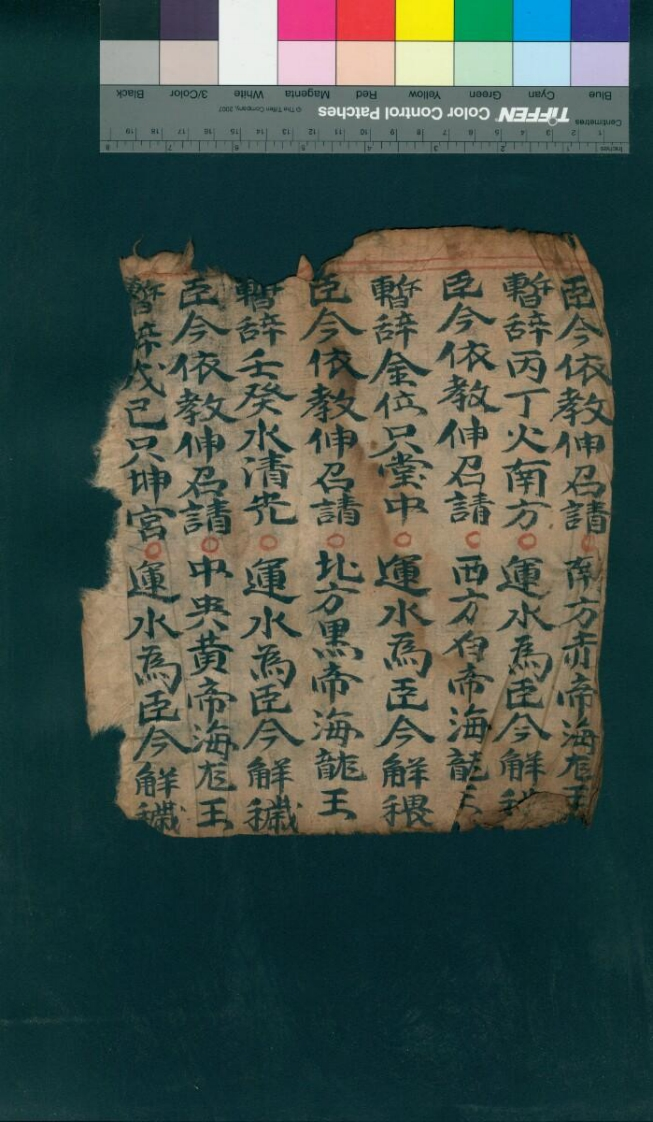 Blue Cyan Green Yellow Red Magenta White 3/Color Black
TIFFEN Color Control Patches © The Tiffen Company, 2007
Centimetres 1 2 3 4 5 6 7 8 9 10 11 12 13 14 15 16 17 18 19
Inches 1 2 3 4 5 6 7 8
臣今依教伸召請○南方赤帝海龙王
暫辞丙丁火南方○運水為臣今解
臣今依教伸召請○西方白帝海龍王
暫辞金位只堂中○運水為臣今解
臣今依教伸召請○北方黑帝海龍王
暫辞壬癸水清光○運水為臣今解穢
臣今依教伸召請○中央黄帝海龙王
暫辞戊己只坤宮○運水為臣今解穢